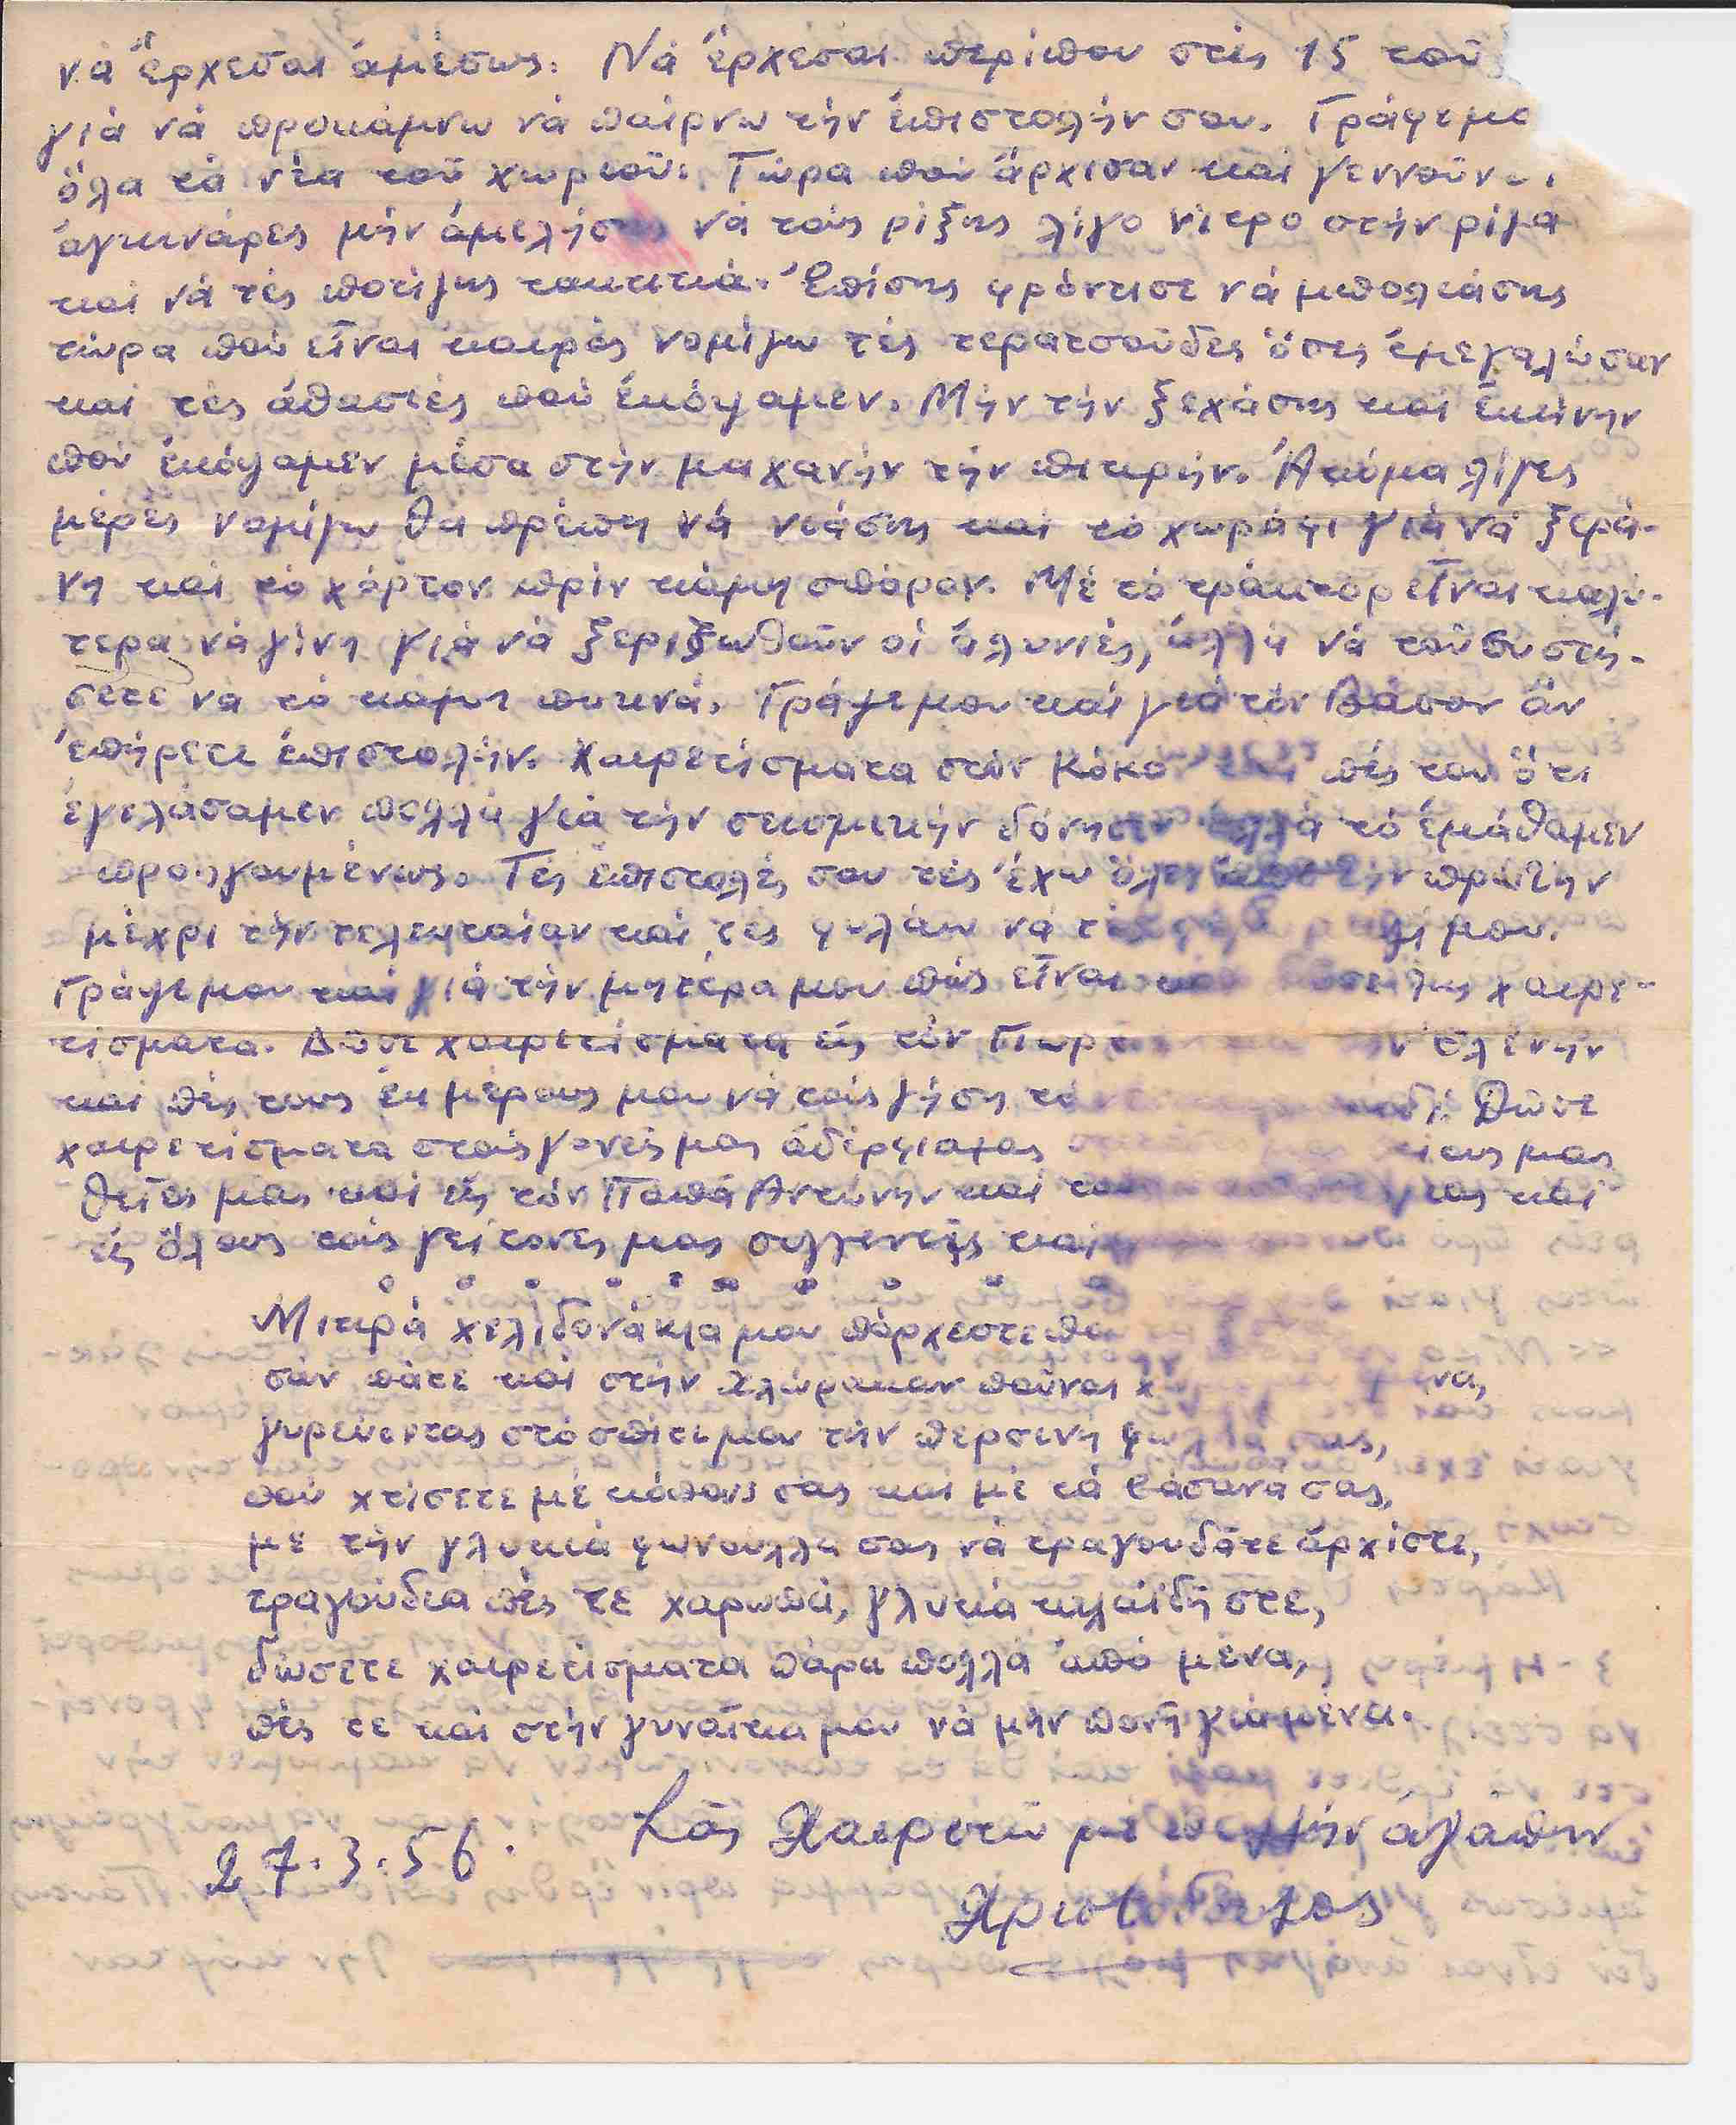 νά ἔρχεσαι ἀμέσως. Νά ἔρχεσαι περίπου στές 15 τοῦ
γιά νά προκάμνω νά παίρνω τήν ἐπιστολήν σου. Γράψε μο
ὅλα τά νέα τοῦ χωριοῦ. Τώρα πού ἄρχισαν καί γεννοῦν
ἀγκινάρες μήν ἀμελήσης νά τούς ρίξης λίγο νίτρο στήν ρίζα
καί νά τές ποτίζης τακτικά. Ἐπίσης φρόντισε νά μπολιάσης
τώρα πού εἶναι καιρός νομίζω τές τερατσοῦδες ὅσες ἐμεγαλώσαν
καί τές ἀθασιές πού ἐκόψαμεν. Μήν τήν ξεχάσης καί ἐκίνην
πού ἐκόψαμεν μέσα στήν μαχανήν τήν πικρήν. Ἀκόμα λίγες
μέρες νομίζω θά πρέπη νά νιάσης καί τό χωράφι γιά νά ξερά-
νη καί τό χόρτον πρίν κάμη σπόρον. Μέ τό τράκτορ εἶναι καλύ-
τερα νά γίνη γιά νά ξεριζωθοῦν οἱ ἀλυνιές, ἀλλά νά τοῦ συστή-
σετε νά τό κάμη πυκνά. Γράψε μου καί γιά τόν Βάσον ἄν
ἐπήρετε ἐπιστολήν. Χαιρετίσματα στόν Κόκο πές του ὅτι
ἐγελάσαμεν πολλά γιά τήν σεισμικήν δόνησιν ἀλλά τό ἐμάθαμεν
προηγουμένως. Τές ἐπιστολές σου τές ἔχω ὅλες ἀπό τήν πρώτην
μέχρι τήν τελευταίαν καί τές φυλάω νά τ μου.
Γράψε μου καί γιά τήν μητέρα μου πῶς εἶναι χαιρε-
τίσματα. Δῶσε χαιρετίσματα εἰς τόν Γιωρ Ἑλένην
καί πές τους ἐκ μέρους μου νά τούς ζήση τό Δῶσε
χαιρετίσματα στούς γονεῖς μας ἀδέρφια μας μας
θεῖες μας καί εἰς τόν Παπά Ἀντώνην καί καί
εἰς ὅλους τούς γείτονες μας συγγενεῖς καί
Μικρά χελιδονάκια μου πὄρχεστε
σάν πάτε καί στήν Χλώρακαν ποὖναι να,
γυρεύοντας στό σπίτι μου τήν περσινή φωλιά σας,
πού χτίσετε μέ κόπους σας καί μέ τά βάσανα σας,
μέ τήν γλυκιά φωνούλλα σας νά τραγουδᾶτε ἀρχίστε,
τραγούδια πές τε χαρωπά, γλυκά κελαϊδῆστε,
δώσετε χαιρετίσματα πάρα πολλά ἀπό μένα,
πές τε καί στήν γυναῖκα μου νά μήν πονῆ γιά μένα.
27.3.56. Σᾶς Χαιρετῶ μέ πολλήν ἀγάπην